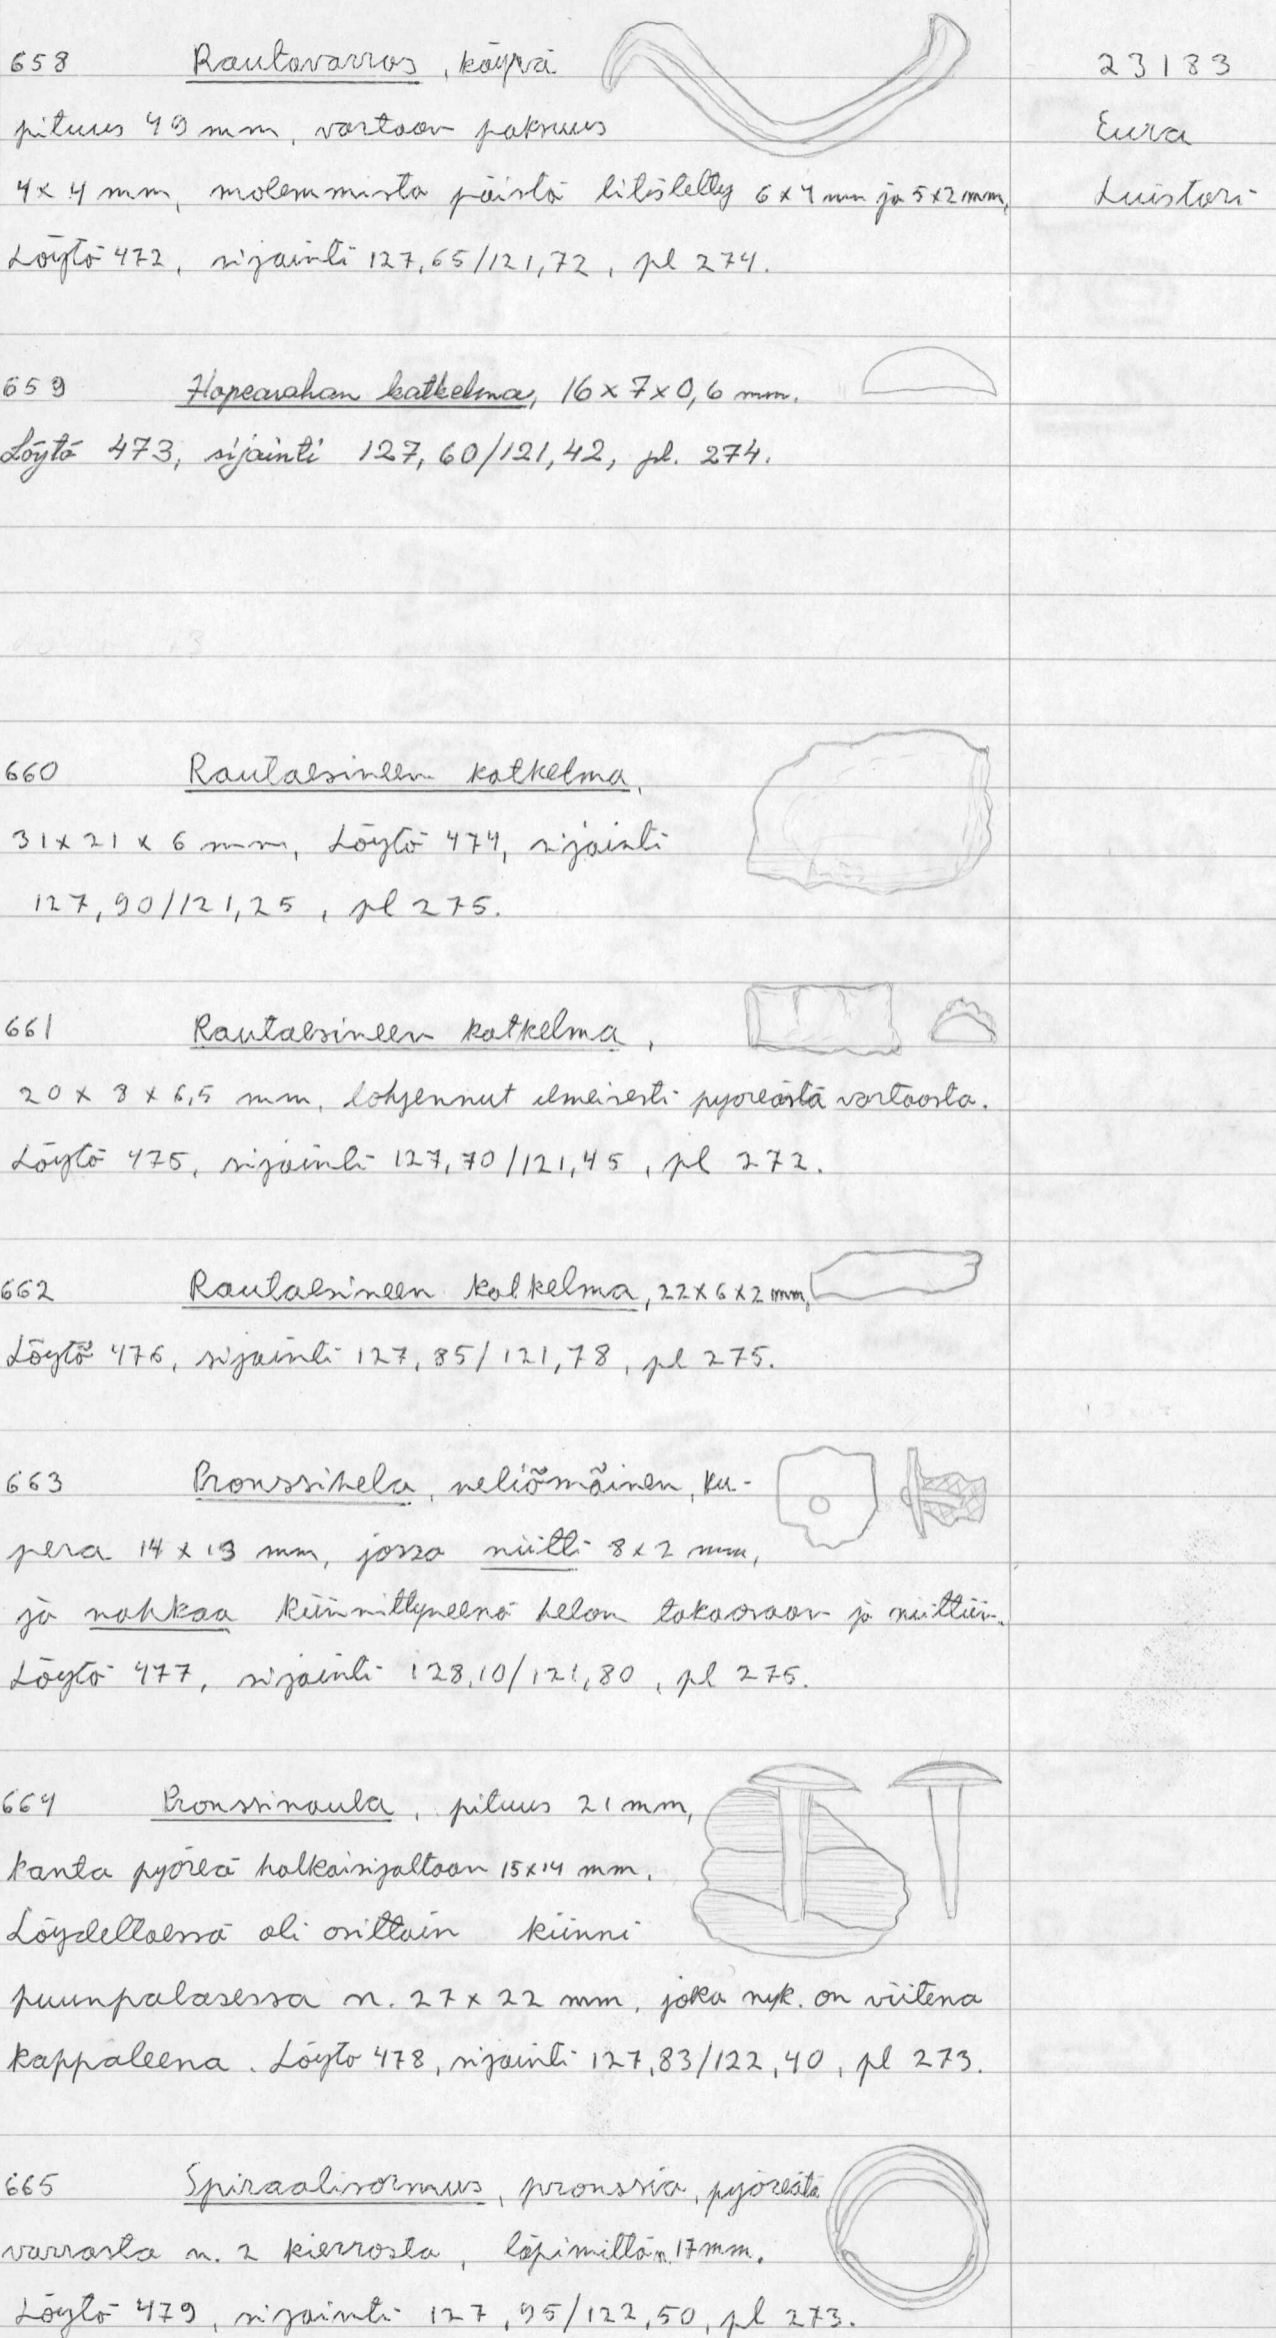 658 Rautavarras, käyrä
pituus 49 mm, vartaan paksuus
4 x 4 mm, molemmista päistä litistetty 6 x 4 mm ja 5 x 2 mm,
Löytö 472, sijainti 127,65/121,72, pl 274.
23183
Eura
Luistari
659 Hopearahan katkelma, 16 x 7 x 0,6 mm.
Löytö 473, sijainti 127,60/121,42, pl. 274.
660 Rautaesineen katkelma,
31 x 21 x 6 mm, Löytö 474, sijainti
127,90/121,25, pl 275.
661 Rautaesineen katkelma,
20 x 8 x 6,5 mm, lohjennut ilmeisesti pyöreästä vartaasta.
Löytö 475, sijainti 127,70/121,45, pl 272.
662 Rautaesineen katkelma, 22 x 6 x 2 mm,
Löytö 476, sijainti 127,85/121,78, pl 275.
663 Pronssihela, neliömäinen, ku-
pera 14 x 13 mm, jossa niitti 8 x 2 mm,
ja nahkaa kiinnittyneenä helan takaosaan ja niittiin.
Löytö 477, sijainti 128,10/121,80, pl 275.
664 Pronssinaula, pituus 21 mm,
kanta pyöreä halkaisijaltaan 15x14 mm.
Löydettäessä oli osittain kiinni
puunpalasessa n. 27 x 22 mm, joka nyk. on viitenä
kappaleena. Löytö 478, sijainti 127,83/122,40, pl 273.
665 Spiraalisormus, pronssia, pyöreätä
varrasta n. 2 kierrosta, läpimitta n. 17 mm.
Löytö 479, sijainti 127,95/122,50, pl 273.